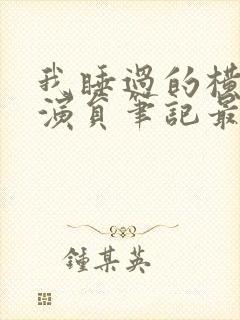 我睡過的橫
演員筆記最
鍾某英